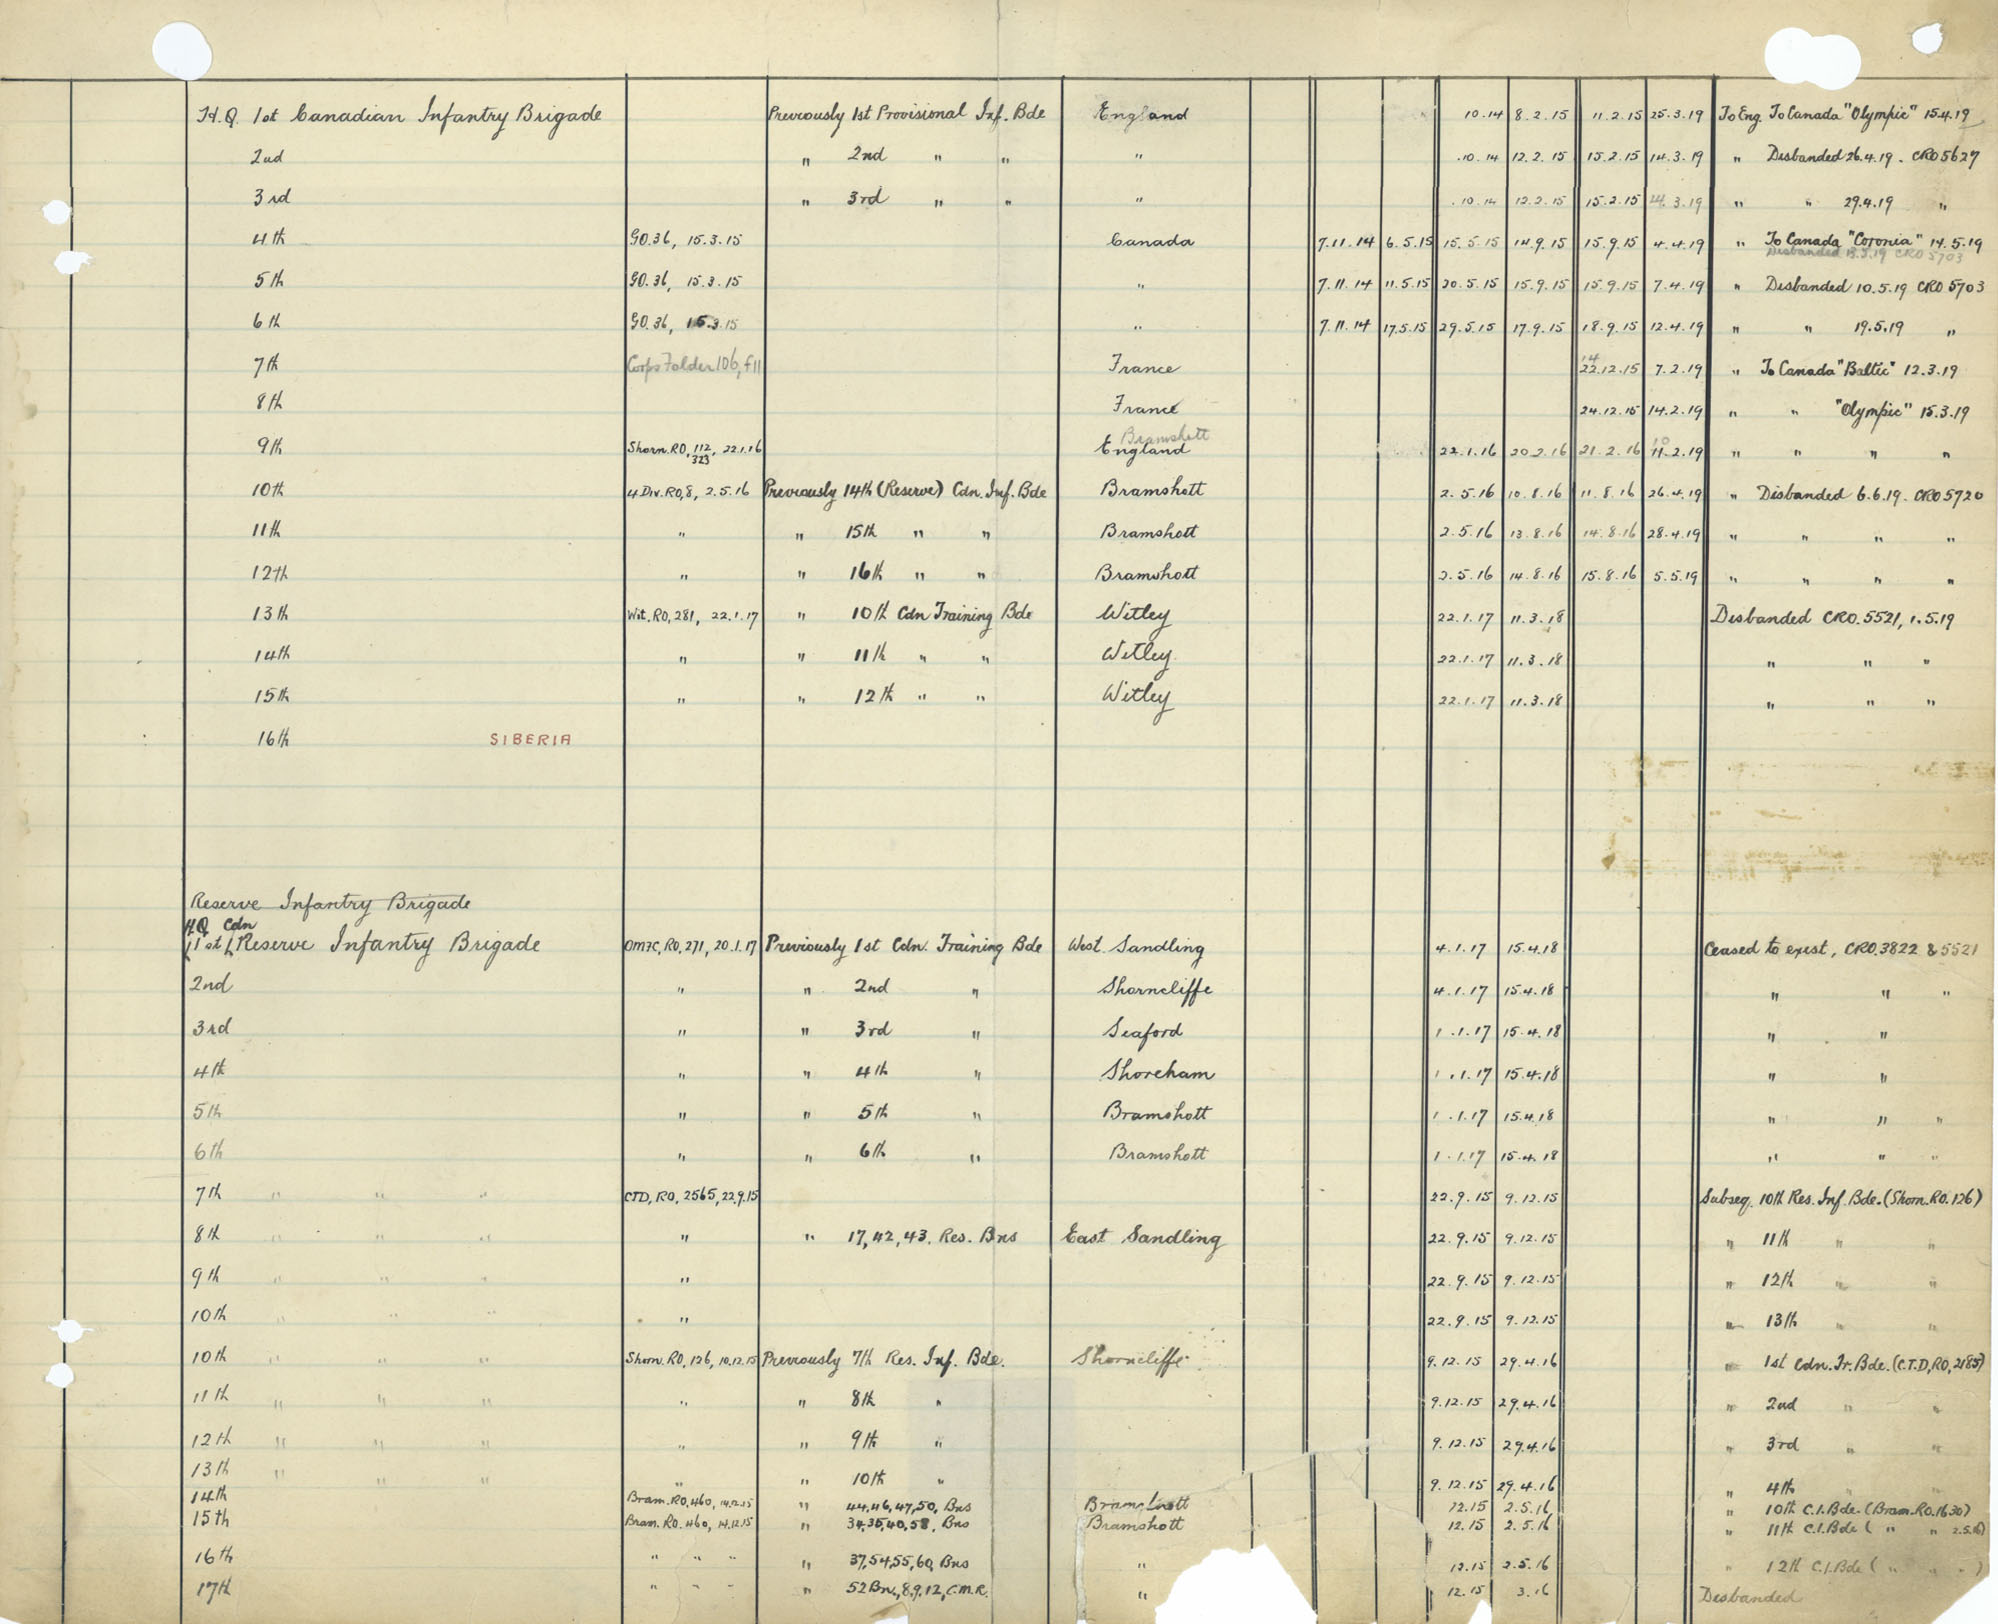 H.Q. 1st Canadian Infantry Brigade Previously 1st Provisional Inf. Bde England 10.14 8.2.15 11.2.15 25.3.19 To Eng. To Canada "Olympic" 15.4.19
2nd " 2nd " " " .10.14 12.2.15 15.2.15 14.3.19 " Disbanded 26.4.19. CRO 5627
3rd " 3rd " " " .10.14 12.2.15 15.2.15 14.3.19 " " 29.4.19 "
4th GO.36, 15.3.15 Canada 7.11.14 6.5.15 15.5.15 14.9.15 15.9.15 4.4.19 " To Canada "Coronia" 14.5.19
Disbanded 13.5.19 CRO 5703
5th GO.36, 15.3.15 " 7.11.14 11.5.15 20.5.15 15.9.15 15.9.15 7.4.19 " Disbanded 10.5.19 CRO 5703
6th GO.36, 15.3.15 " 7.11.14 17.5.15 29.5.15 17.9.15 18.9.15 12.4.19 " " 19.5.19 "
14
7th Corps Folder 106, f11 France 22.12.15 7.2.19 " To Canada "Baltic" 12.3.19
8th France 24.12.15 14.2.19 " " "Olympic" 15.3.19
Bramshott 10
9th Shorn.RO, 112/323, 22.1.16 England 22.1.16 20.2.16 21.2.16 11.2.19 " " " "
10th 4 Div.RO,8, 2.5.16 Previously 14th (Reserve) Cdn. Inf. Bde Bramshott 2.5.16 10.8.16 11.8.16 26.4.19 " Disbanded 6.6.19. CRO 5720
11th " " 15th " " Bramshott 2.5.16 13.8.16 14.8.16 28.4.19 " " " "
12th " " 16th " " Bramshott 2.5.16 14.8.16 15.8.16 5.5.19 " " " "
13th Wit.RO,281, 22.1.17 " 10th Cdn Training Bde Witley 22.1.17 11.3.18 Disbanded CRO.5521, 1.5.19
14th " " 11th " " Witley 22.1.17 11.3.18 " " "
15th " " 12th " " Witley 22.1.17 11.3.18 " " "
16th SIBERIA
Reserve Infantry Brigade
H.Q. Cdn
1st Reserve Infantry Brigade OMFC, RO, 271, 20.1.17 Previously 1st Cdn. Training Bde West Sandling 4.1.17 15.4.18 Ceased to exist, CRO.3822 & 5521
2nd " " 2nd " Shorncliffe 4.1.17 15.4.18 " " "
3rd " " 3rd " Seaford 1.1.17 15.4.18 " "
4th " " 4th " Shoreham 1.1.17 15.4.18 " "
5th " " 5th " Bramshott 1.1.17 15.4.18 " " "
6th " " 6th " Bramshott 1.1.17 15.4.18 " " "
7th " " " CTD, RO, 2565, 22.9.15 22.9.15 9.12.15 Subseq. 10th Res. Inf. Bde. (Shorn.RO.126)
8th " " " " " 17,42,43. Res. Bns East Sandling 22.9.15 9.12.15 " 11th " "
9th " " " " 22.9.15 9.12.15 " 12th " "
10th " " " " 22.9.15 9.12.15 " 13th " "
10th " " " Shorn. RO, 126, 10.12.15 Previously 7th Res. Inf. Bde. Shorncliffe 9.12.15 29.4.16 " 1st Cdn. Tr. Bde. (C.T.D, RO, 2185)
11th " " " " " 8th " 9.12.15 29.4.16 " 2nd " "
12th " " " " " 9th " 9.12.15 29.4.16 " 3rd " "
13th " " " " " 10th " 9.12.15 29.4.16 " 4th " "
14th Bram. RO.460, 14.12.15 " 44,46,47,50, Bns Bramshott 12.15 2.5.16 " 10th C.I.Bde. (Bram.RO.1630)
15th Bram. RO.460, 14.12.15 " 34,35,40,58, Bns Bramshott 12.15 2.5.16 " 11th C.I.Bde ( " " 2.5.16)
16th " " " " 37,54,55,60, Bns " 12.15 2.5.16 " 12th C.I.Bde ( " " " )
17th " " " " 52 Bn., 8.9.12, C.M.R. " 12.15 3.16 Disbanded